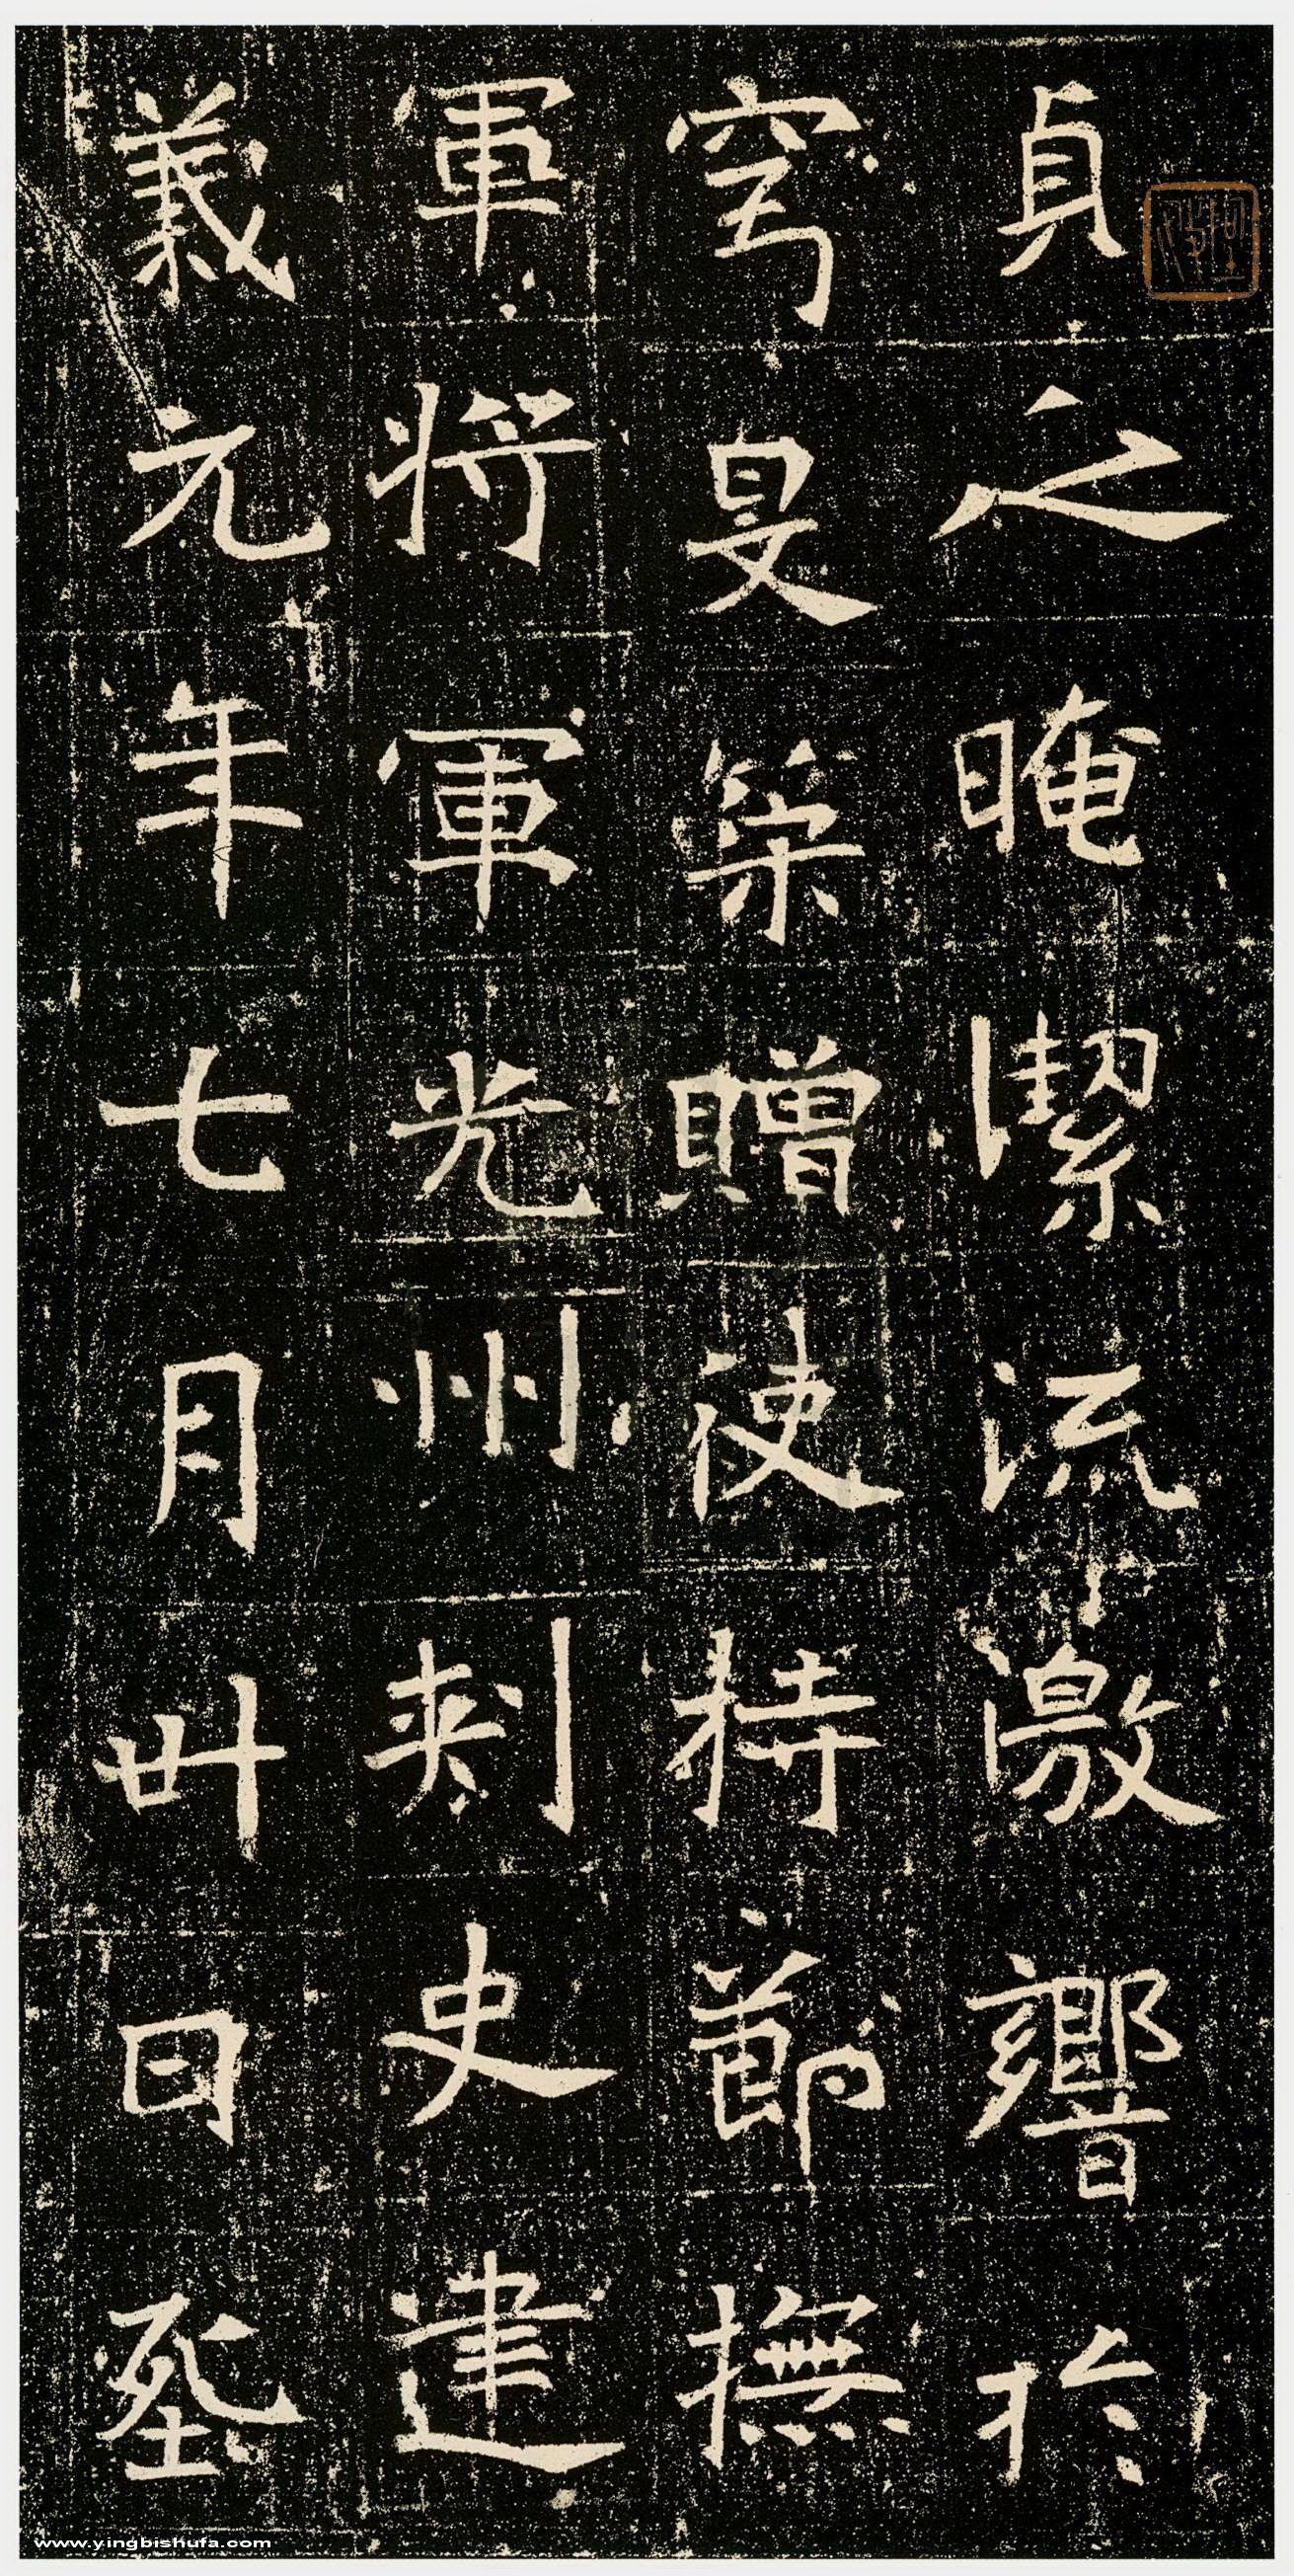 貞之晻潔流激響於
穹旻築贈使持節撫
軍將軍光州刺史建
義元年七月卅日葬
www.yingbishufa.com